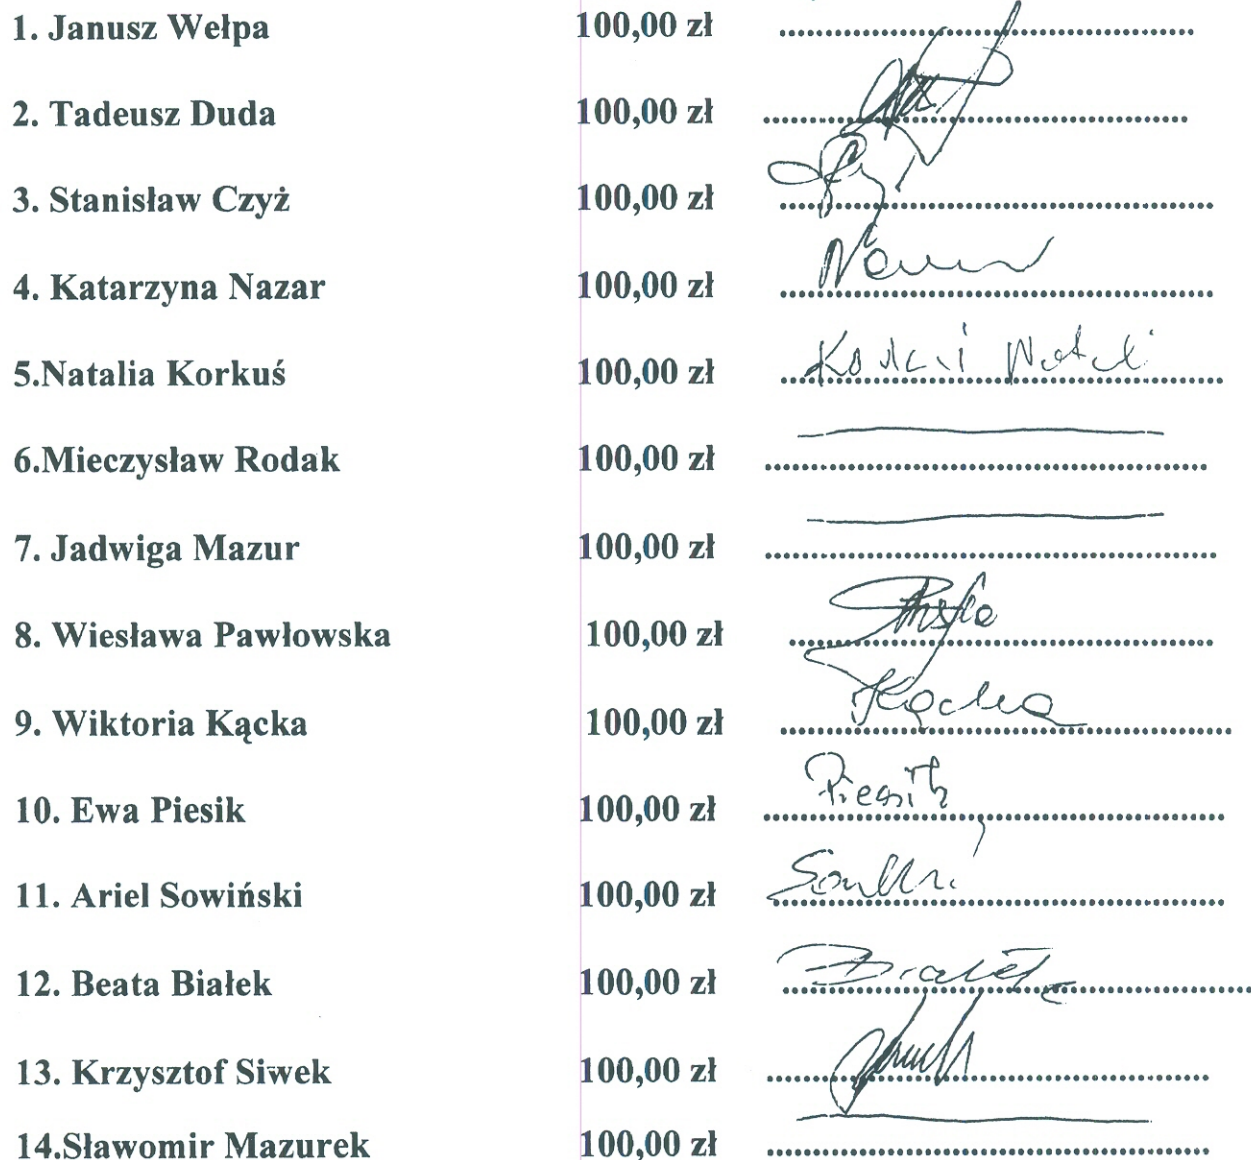 1. Janusz Wełpa 100,00 zł ........................................
2. Tadeusz Duda 100,00 zł ........................................
3. Stanisław Czyż 100,00 zł ........................................
4. Katarzyna Nazar 100,00 zł ........................................
5.Natalia Korkuś 100,00 zł ........................................
6.Mieczysław Rodak 100,00 zł ........................................
7. Jadwiga Mazur 100,00 zł ........................................
8. Wiesława Pawłowska 100,00 zł ........................................
9. Wiktoria Kącka 100,00 zł Kącka
10. Ewa Piesik 100,00 zł Piesik
11. Ariel Sowiński 100,00 zł ........................................
12. Beata Białek 100,00 zł Białek
13. Krzysztof Siwek 100,00 zł ........................................
14.Sławomir Mazurek 100,00 zł ........................................